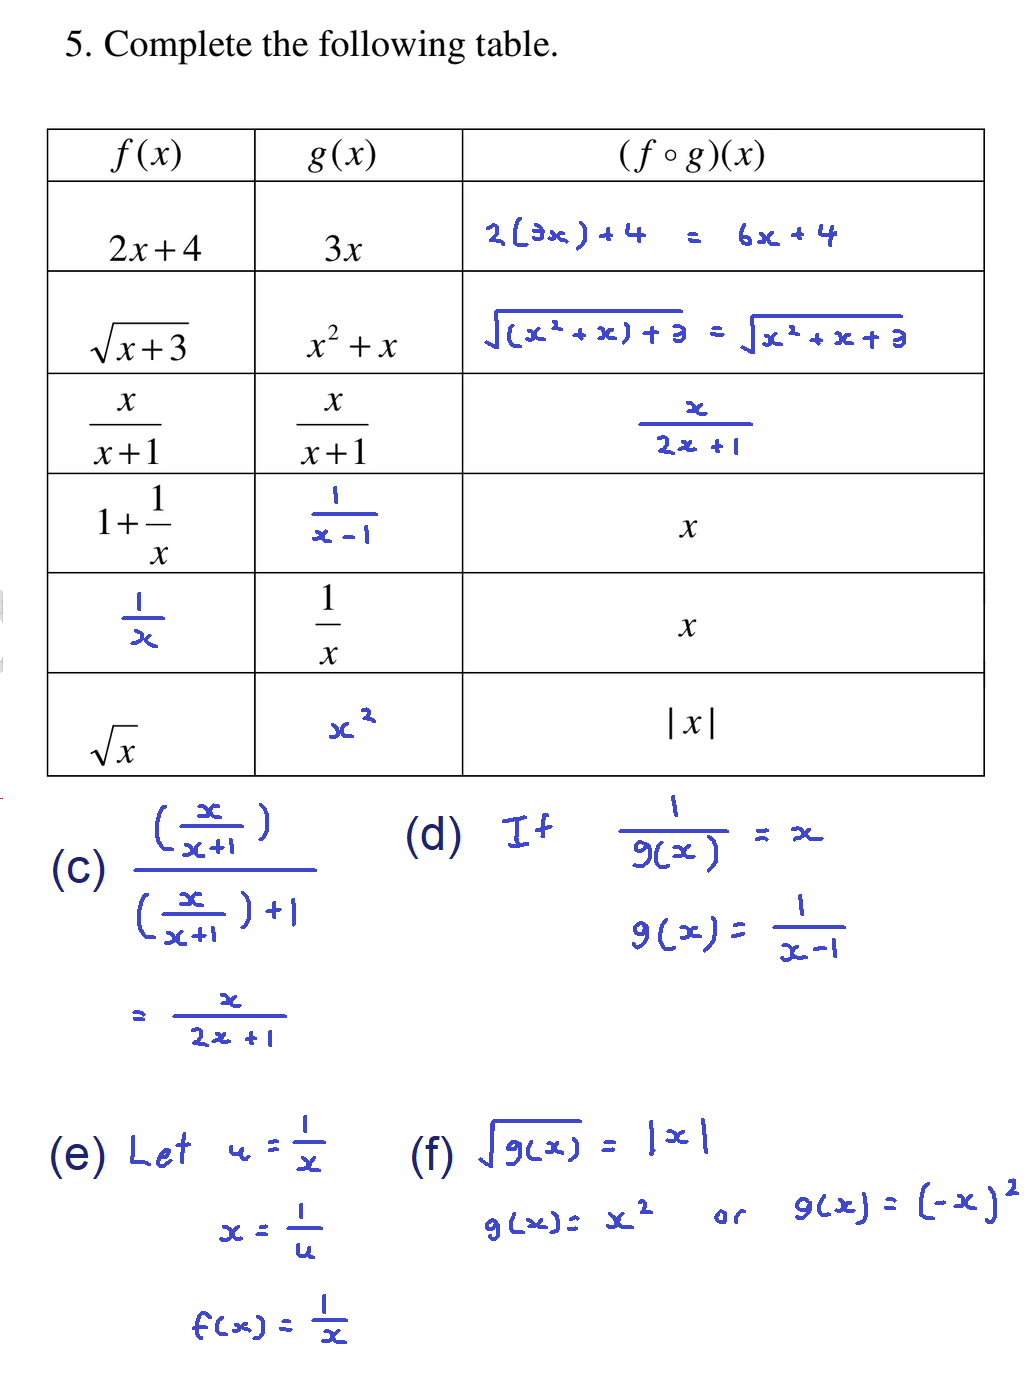 5. Complete the following table.
f(x) g(x) (f∘g)(x)
2x+4 3x 2(3x)+4 = 6x+4
√(x+3) x²+x √((x²+x)+3) = √(x²+x+3)
x/(x+1) x/(x+1) x/(2x+1)
1+1/x 1/(x-1) x
1/x 1/x x
√x x² |x|
(c) (x/(x+1))/((x/(x+1))+1)
= x/(2x+1)
(d) If 1/g(x) = x
g(x) = 1/(x-1)
(e) Let u = 1/x
x = 1/u
f(x) = 1/x
(f) √g(x) = |x|
g(x) = x² or g(x) = (-x)²